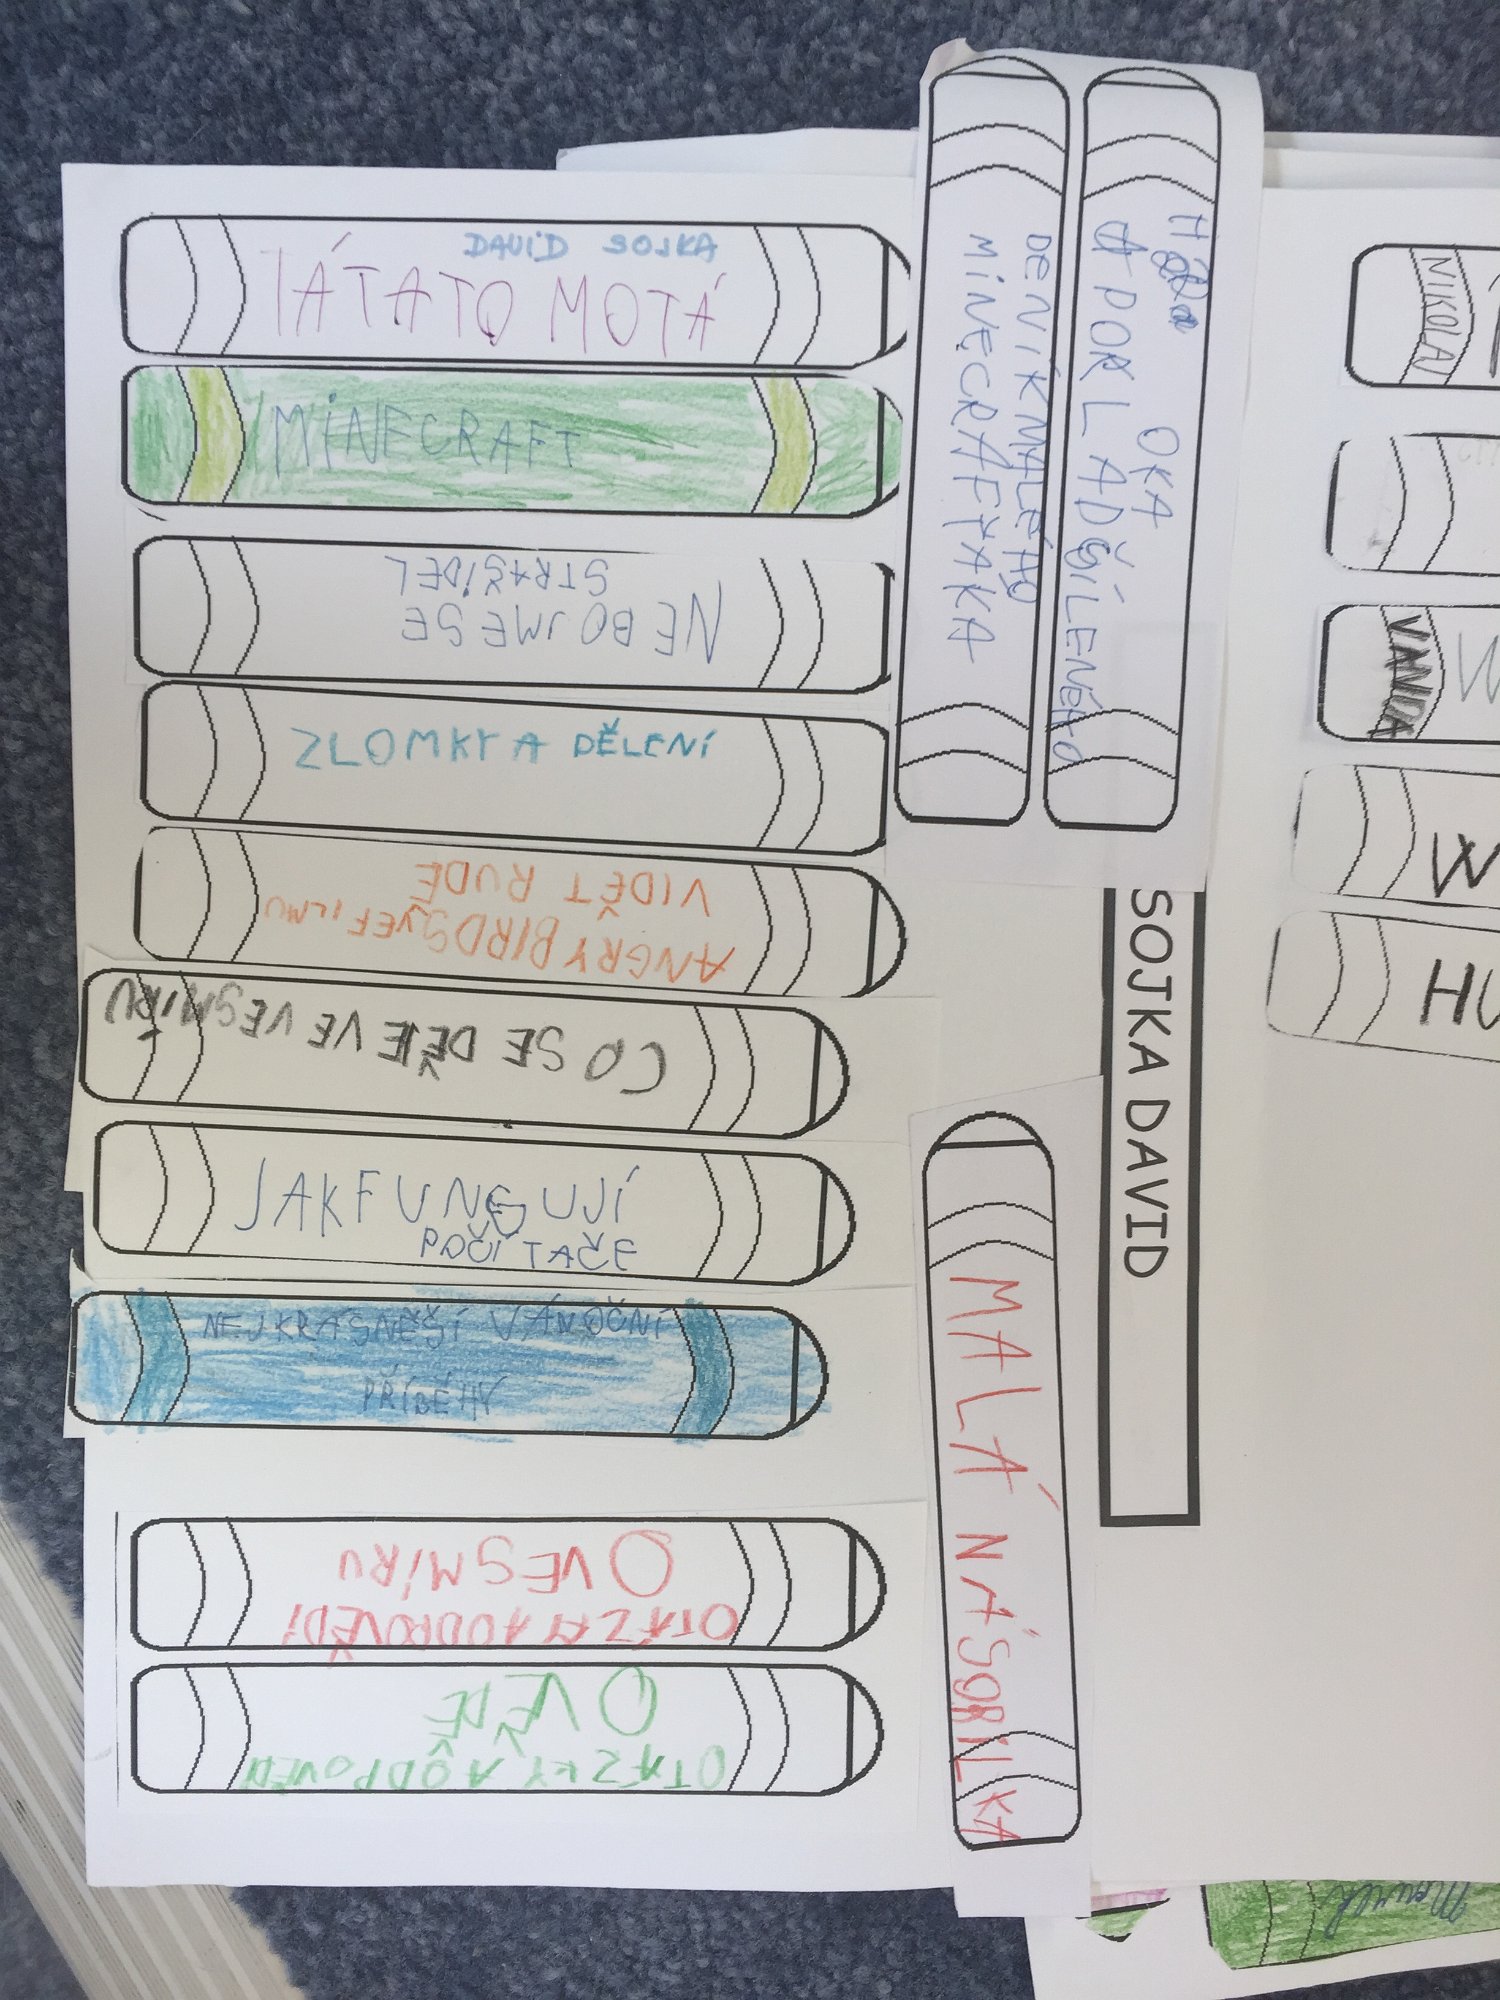 DAVID SOJKA
TÁTATO MOTÁ
MINECRAFT
NEBOJME SE
STRAŠIDEL
ZLOMKY A DĚLENÍ
ANGRY BIRDS VE FILMU
VIDĚT RUDĚ
CO SE DĚJE VE VESMÍRU
JAK FUNGUJÍ
POČÍTAČE
NEJKRASNĚŠÍ VÁNOČNÍ
PŘÍBĚHY
OTÁZKY A ODPOVĚDI
O VESMÍRU
OTÁZKY A ODPOVĚDI
O VĚDĚ
DENÍK MALÉHO
MINECRAFŤÁKA
OKA
A POKLAD ŠÍLENÉHO
MALÁ NÁSOBILKA
SOJKA DAVID
NIKOLAJ
VANDA
W
HU